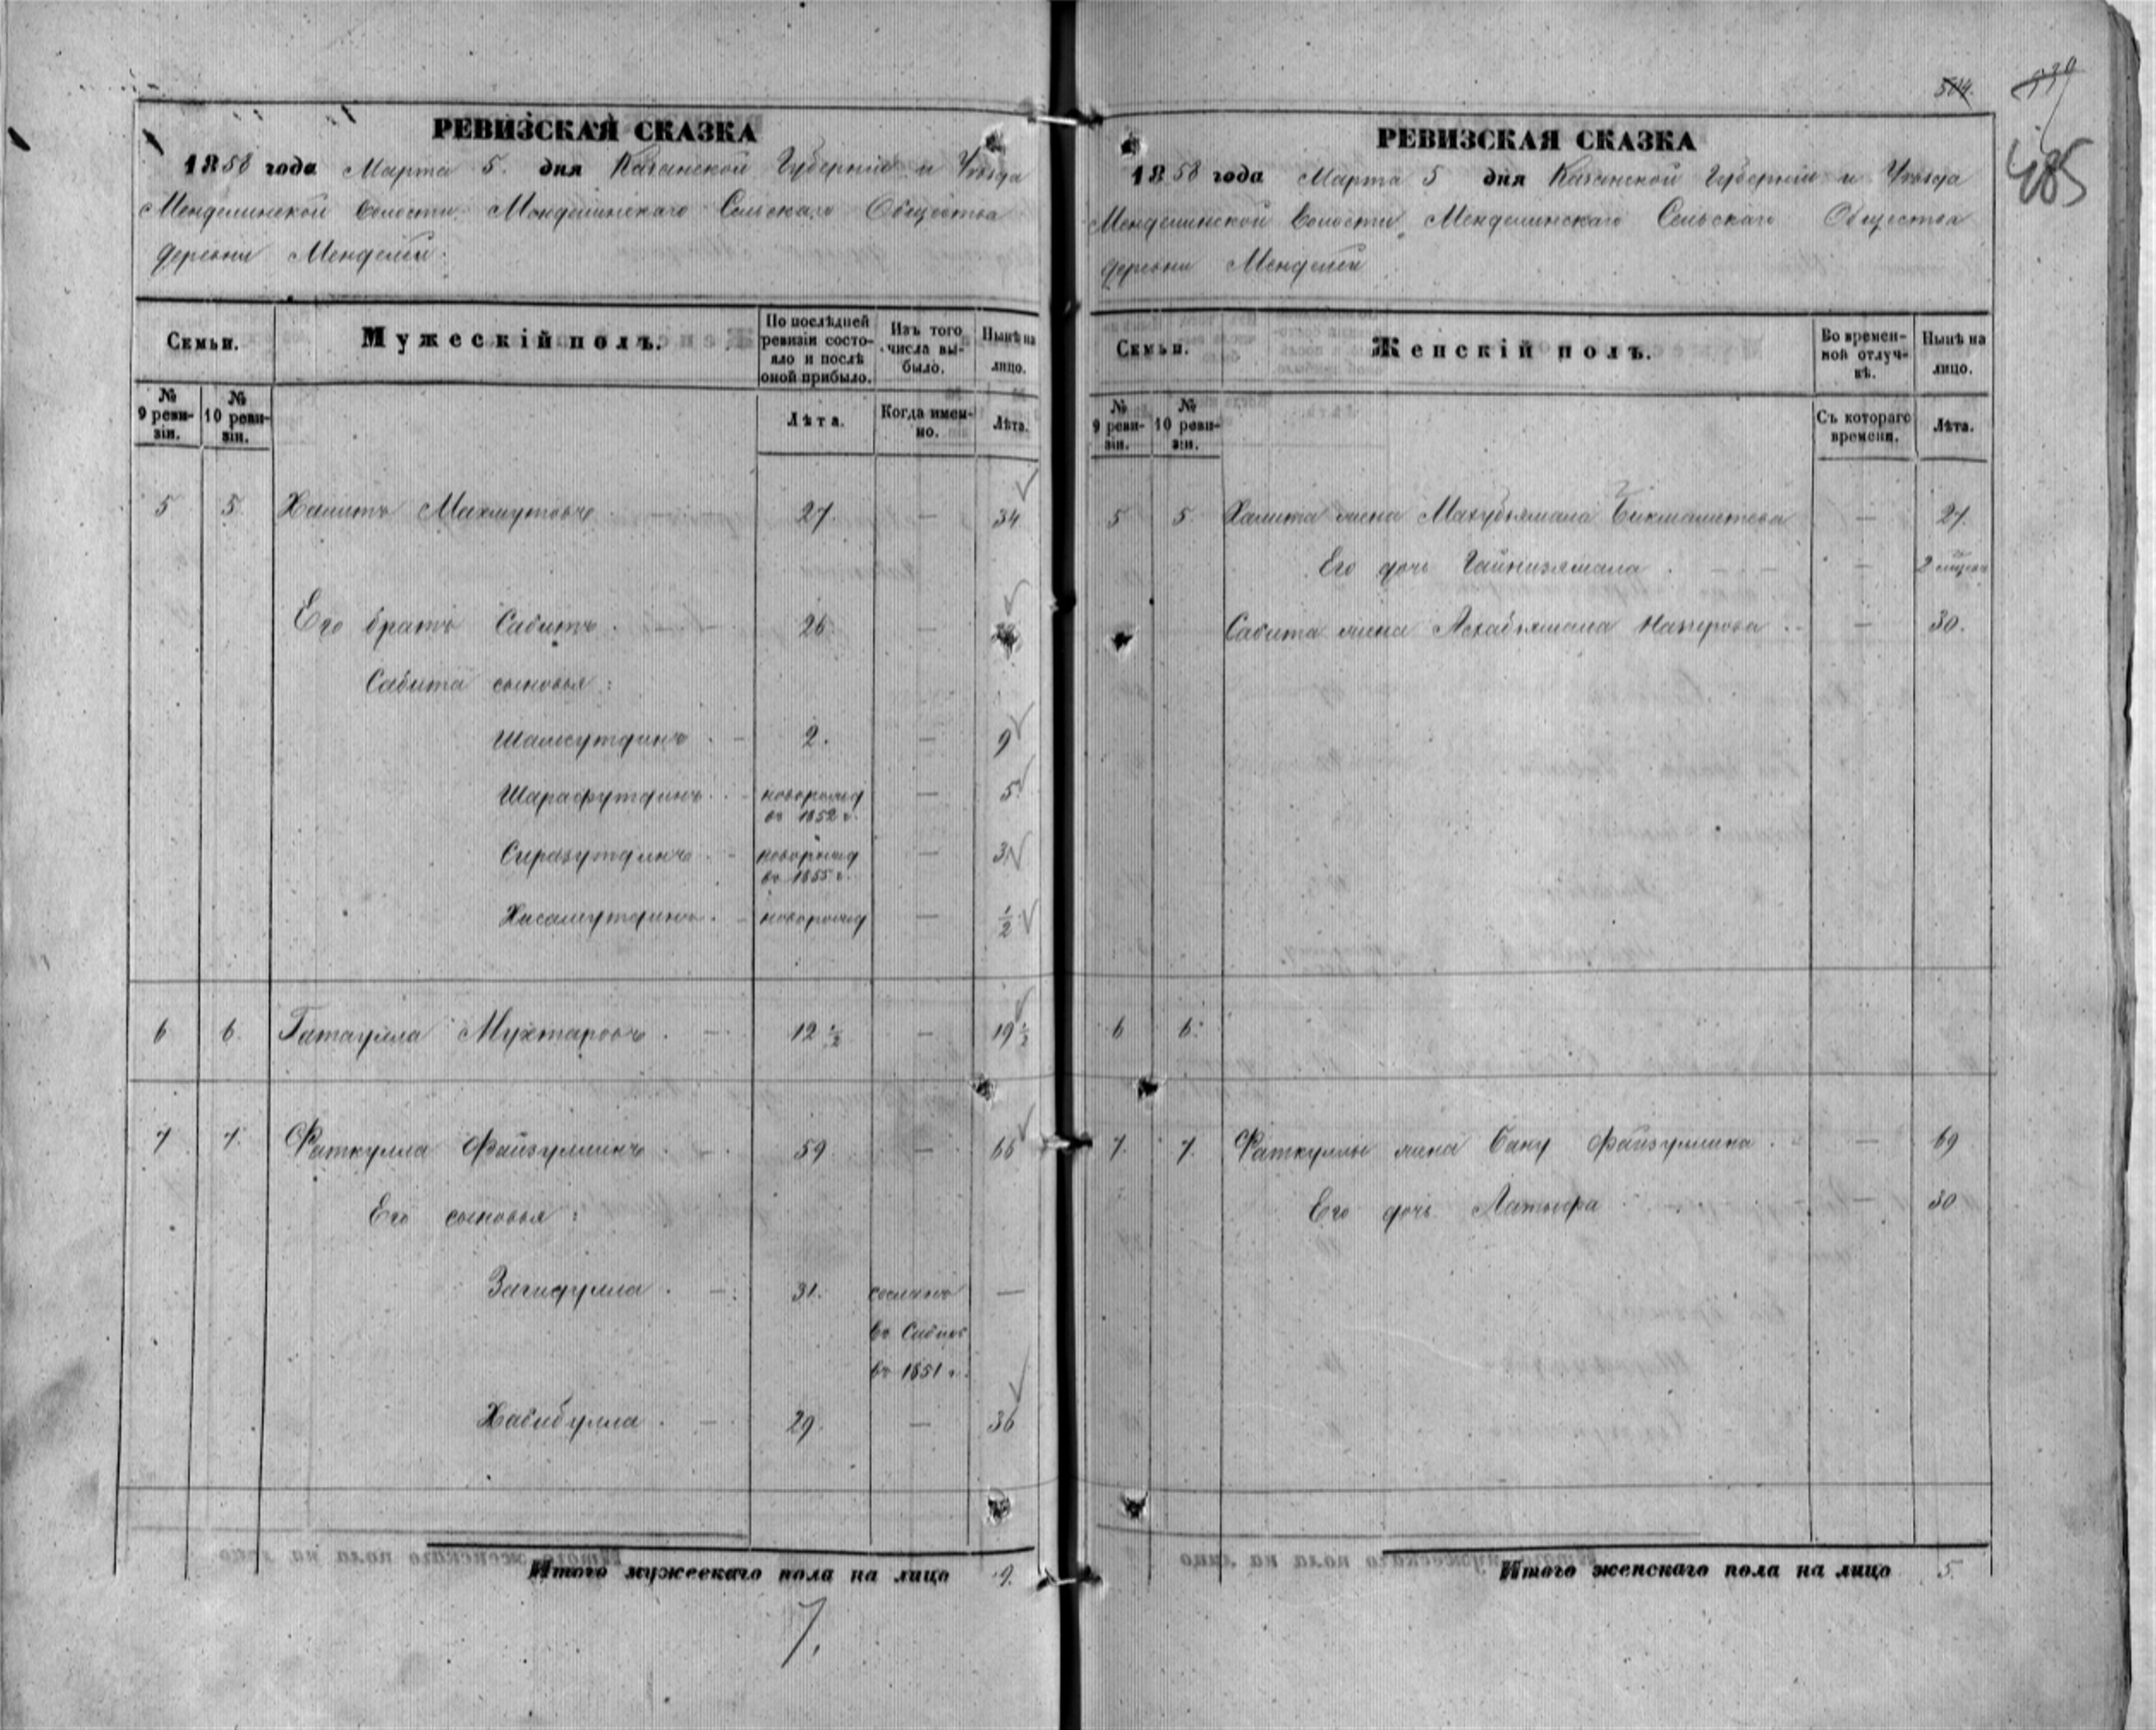 504.
485
РЕВИЗСКАЯ СКАЗКА
1858 года Марта 5. дня Казанской Губернии и Уѣзда
Менделинской Волости Менделинскаго Сельскаго Общества
деревни Менделей:
Семьи.
Мужескій полъ.
По послѣдней ревизіи состояло и послѣ оной прибыло.
Изъ того числа выбыло.
Нынѣ на лицо.
№ 9 ревизіи.
№ 10 ревизіи.
Лѣта.
Когда именно.
Лѣта.
5 5 Халитъ Махмутовъ 27. — 34
Его братъ Сабитъ. 26. —
Сабита сыновья:
Шамсутдинъ. 2. — 9
Шарафутдинъ. новорожд — 5
въ 1852 г.
Сиразутдинъ. новорожд — 3
въ 1855 г.
Хисамутдинъ. новорожд — ½
6 6. Гатаулла Мухтаровъ. 12 ½ — 19 ½
7 7. Фаткулла Файзуллинъ. 59. — 66
Его сыновья:
Загидулла. 31. сосланъ —
въ Сибирь
въ 1851 г.
Хабибулла. 29. — 36
Итого мужескаго пола на лицо 9.
7.
РЕВИЗСКАЯ СКАЗКА
1858 года Марта 5 дня Казанской Губерніи и Уѣзда
Менделинской Волости, Менделинскаго Сельскаго Общества
деревни Менделей
Семьи.
Женскій полъ.
Во временной отлучкѣ.
Нынѣ на лицо.
№ 9 ревизіи.
№ 10 ревизіи.
Съ котораго времени.
Лѣта.
5 5. Халита жена Махубжамала Бикмаметева — 27.
Его дочь Гайнизямала. — 2
Сабита жена Асхабжамала Назирова — 30.
6 6.
7. 7. Фаткуллы жена Бану Файзуллина. — 69
Его дочь Латыфа — 30
Итого женскаго пола на лицо 5.